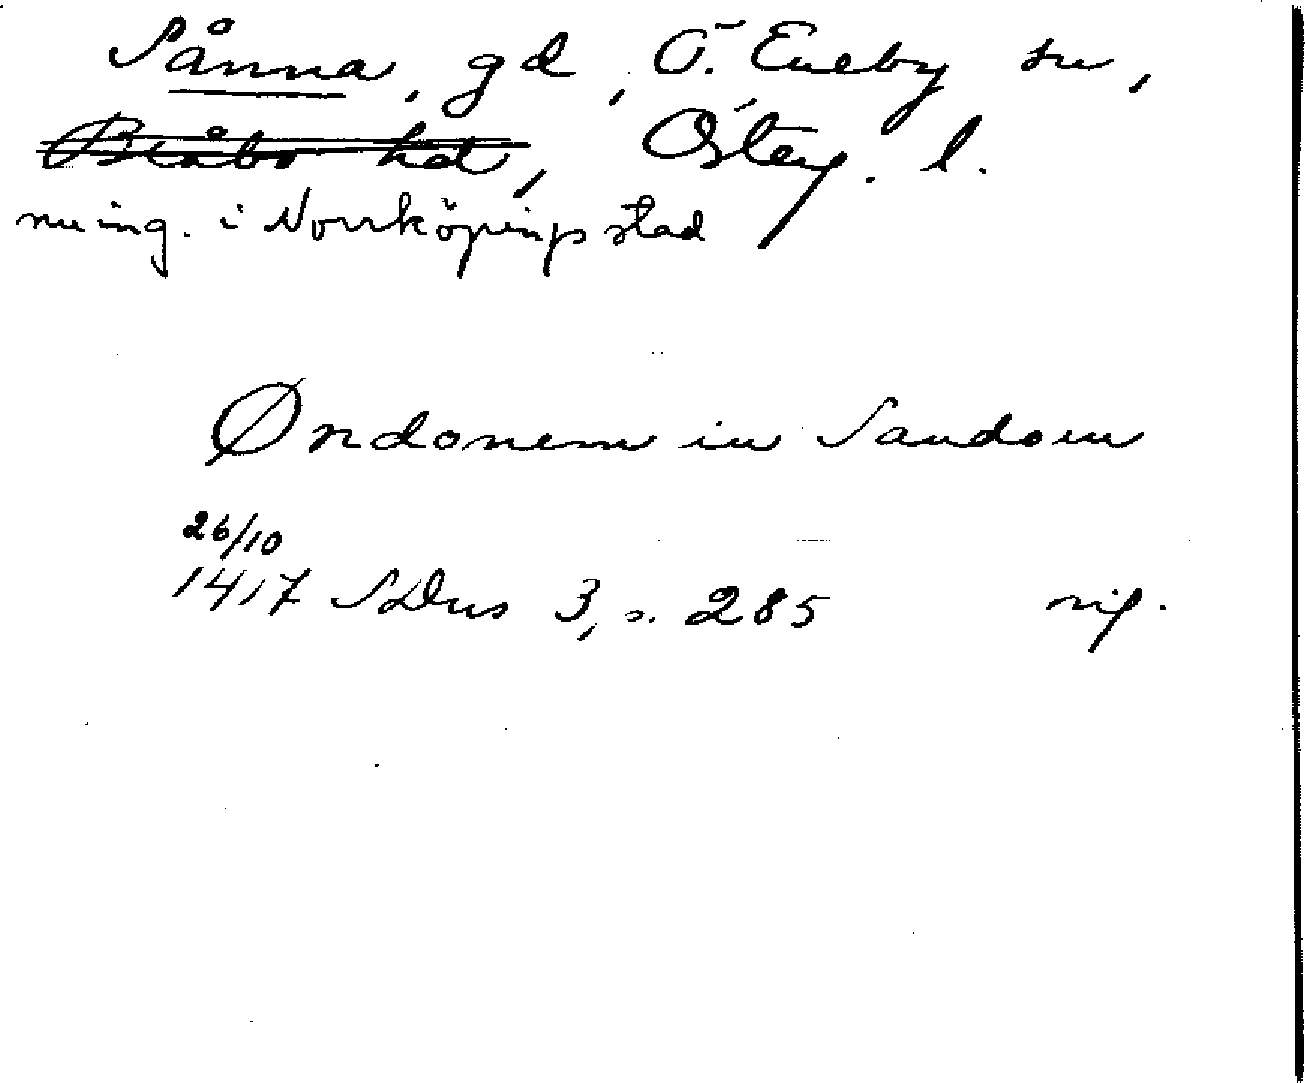 Sånna, gd, Ö. Eneby sn,
Bråbo hd, Österg. l.
nu ing. i Norrköpings stad
Øndonem in Sandom
26/10
1417 SDns 3, s. 285 rip.